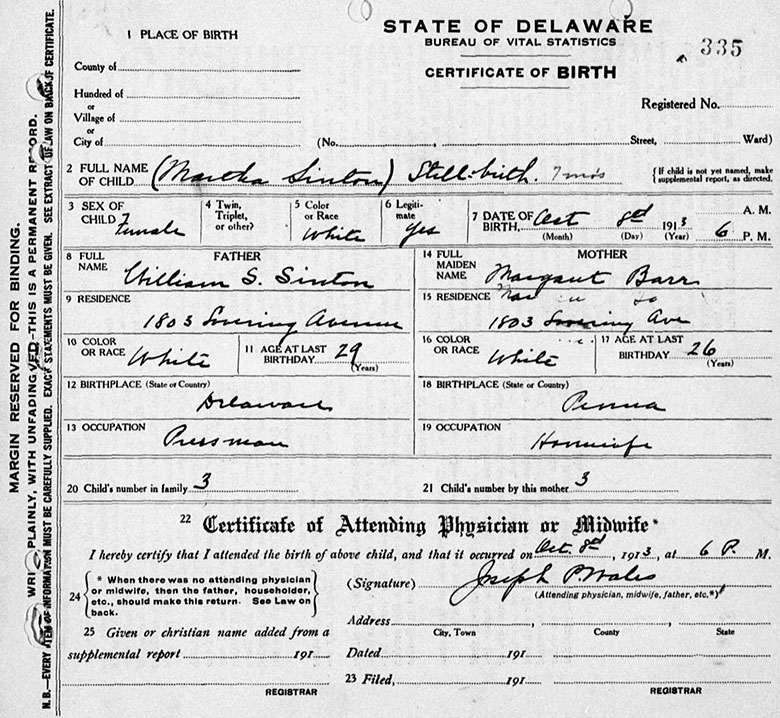 STATE OF DELAWARE
BUREAU OF VITAL STATISTICS
CERTIFICATE OF BIRTH
335
1 PLACE OF BIRTH
County of
Hundred of
or
Village of
or
City of
Registered No.
(No. Street, Ward)
2 FULL NAME OF CHILD (Martha Sinton) Still-birth. 7 mos
{If child is not yet named, make supplemental report, as directed.
3 SEX OF CHILD Female
4 Twin, Triplet, or other?
5 Color or Race White
6 Legitimate Yes
7 DATE OF BIRTH, Oct 8th 1913 6 A. M. P. M.
(Month) (Day) (Year)
FATHER
8 FULL NAME William S. Sinton
9 RESIDENCE
1803 Lovering Avenue
10 COLOR OR RACE White
11 AGE AT LAST BIRTHDAY 29 (Years)
12 BIRTHPLACE (State or Country)
Delaware
13 OCCUPATION
Pressman
MOTHER
14 FULL MAIDEN NAME Margaret Barr
15 RESIDENCE
1803 Lovering Ave
16 COLOR OR RACE White
17 AGE AT LAST BIRTHDAY 26 (Years)
18 BIRTHPLACE (State or Country)
Penna
19 OCCUPATION
Housewife
20 Child's number in family 3
21 Child's number by this mother 3
22 Certificate of Attending Physician or Midwife*
I hereby certify that I attended the birth of above child, and that it occurred on Oct. 8th, 1913, at 6 P. M.
24 { * When there was no attending physician or midwife, then the father, householder, etc., should make this return. See Law on back. }
(Signature) Joseph P. Wales
(Attending physician, midwife, father, etc.*)
Address
City, Town County State
25 Given or christian name added from a
supplemental report 191
REGISTRAR
Dated 191
23 Filed, 191
REGISTRAR
MARGIN RESERVED FOR BINDING.
WRITE PLAINLY, WITH UNFADING THIS IS A PERMANENT RECORD.
N. B.—EVERY ITEM OF INFORMATION MUST BE CAREFULLY SUPPLIED. EXACT STATEMENTS MUST BE GIVEN. SEE EXTRACT OF LAW ON BACK OF CERTIFICATE.